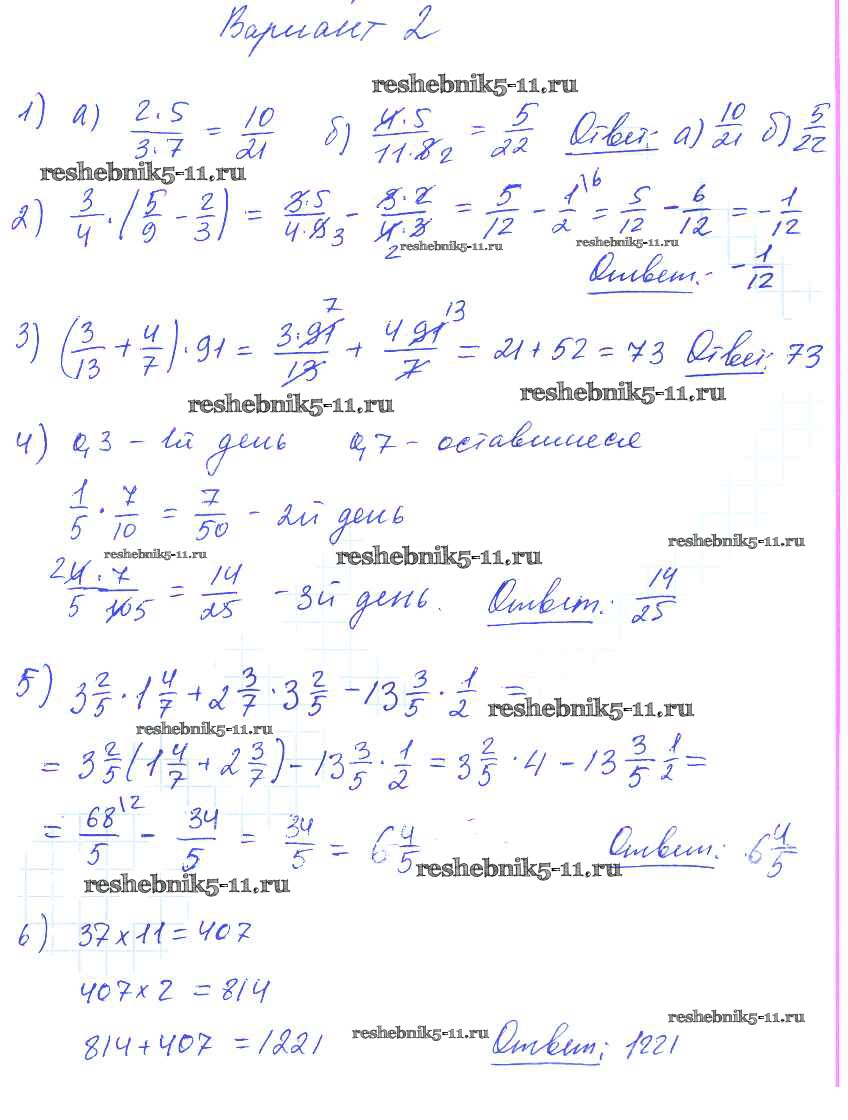 Вариант 2
reshebnik5-11.ru
1) а) 2·5/3·7 = 10/21 б) 4·5/11·8 2 = 5/22 Ответ: а) 10/21 б) 5/22
reshebnik5-11.ru
2) 3/4 · (5/9 - 2/3) = 3·5/4·9 3 - 3·2/4·3 2 = 5/12 - 1/2 \6 = 5/12 - 6/12 = -1/12
reshebnik5-11.ru reshebnik5-11.ru
Ответ: -1/12
3) (3/13 + 4/7) · 91 = 3·91 7/13 + 4 91 13/7 = 21 + 52 = 73 Ответ: 73
reshebnik5-11.ru reshebnik5-11.ru
4) 0,3 - 1й день 0,7 - оставшиеся
1/5 · 7/10 = 7/50 - 2й день
reshebnik5-11.ru reshebnik5-11.ru reshebnik5-11.ru
2 4·7/5 10 5 = 14/25 - 3й день. Ответ: 14/25
5) 3 2/5 · 1 4/7 + 2 3/7 · 3 2/5 - 13 3/5 · 1/2 =
reshebnik5-11.ru reshebnik5-11.ru
= 3 2/5 (1 4/7 + 2 3/7) - 13 3/5 · 1/2 = 3 2/5 · 4 - 13 3/5 1/2 =
= 68/5 \2 - 34/5 = 34/5 = 6 4/5 Ответ: 6 4/5
reshebnik5-11.ru reshebnik5-11.ru
6) 37 × 11 = 407
407 × 2 = 814
reshebnik5-11.ru reshebnik5-11.ru
814 + 407 = 1221 Ответ: 1221